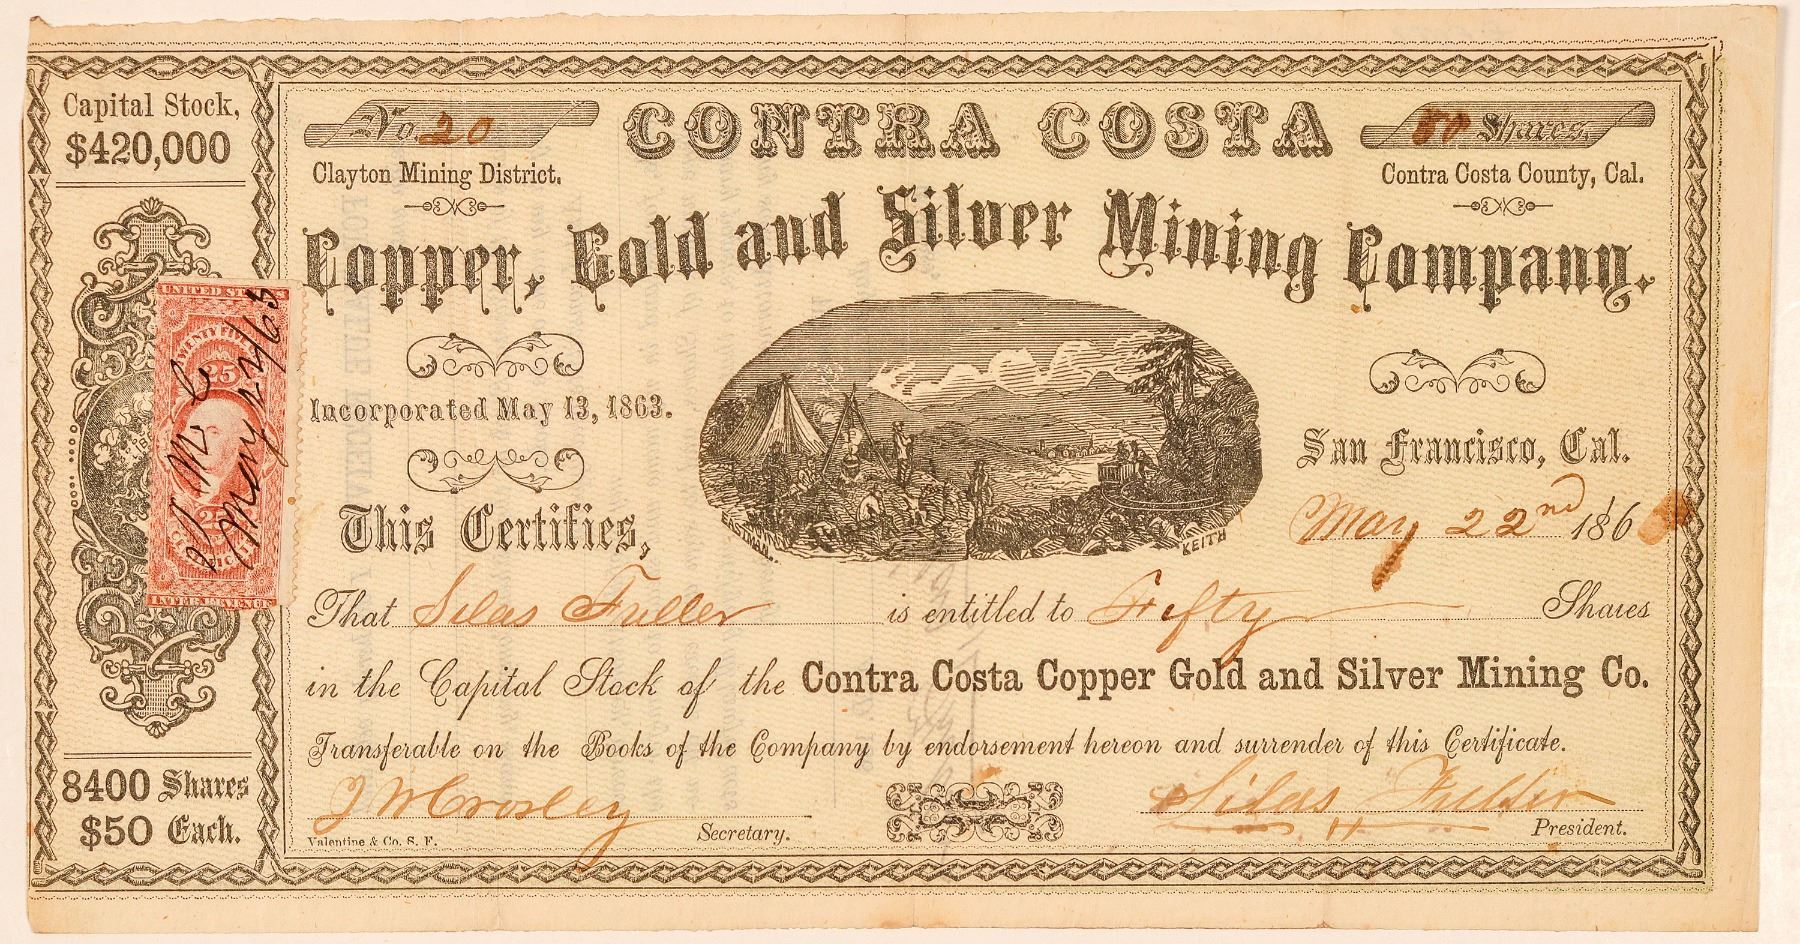 Capital Stock,
$420,000
No. 20
CONTRA COSTA
50 Shares.
Clayton Mining District.
Contra Costa County, Cal.
Copper, Gold and Silver Mining Company.
UNITED STATES
TWENTY FIVE
25
25
CERTIFICATE
INTER REVENUE
May 22/63
Incorporated May 13, 1863.
San Francisco, Cal.
KEITH
May 22nd 186
This Certifies,
That Silas Fuller is entitled to Fifty Shares
in the Capital Stock of the Contra Costa Copper Gold and Silver Mining Co.
Transferable on the Books of the Company by endorsement hereon and surrender of this Certificate.
8400 Shares
$50 Each.
J W Crosley Secretary.
Silas Fuller President.
Valentine & Co. S. F.